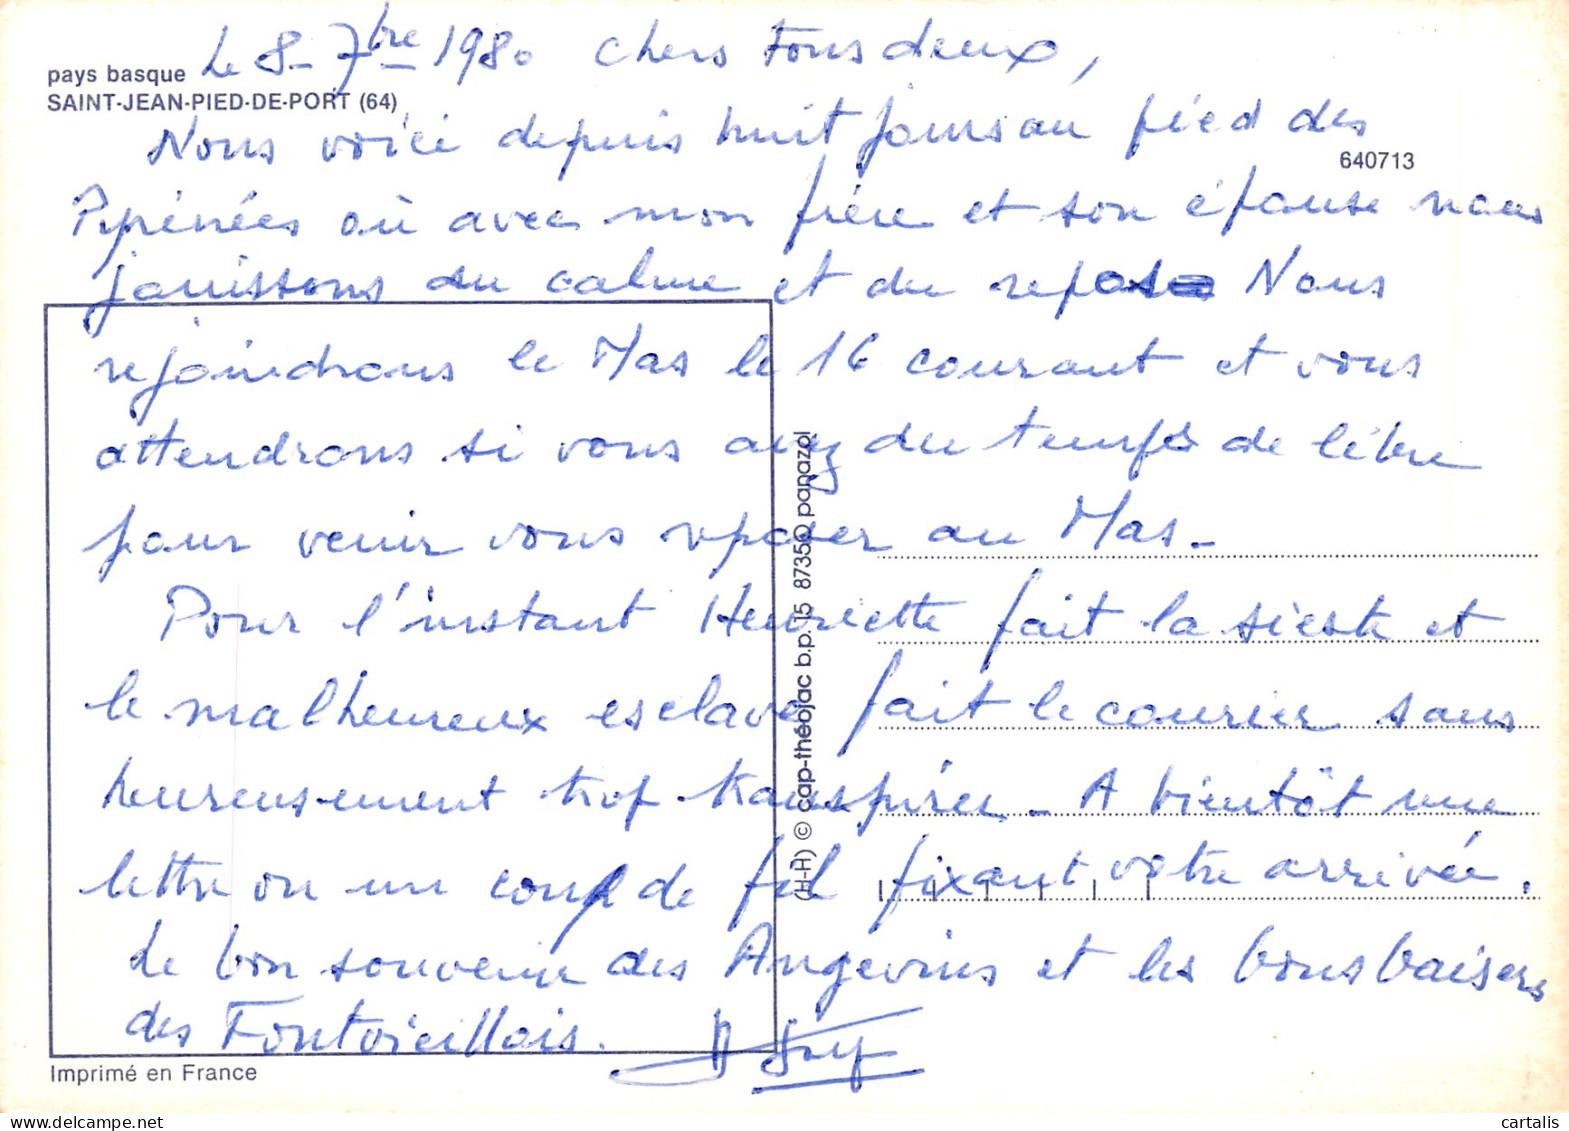 Le 8-7bre 1980 Chers tous deux,
pays basque
SAINT-JEAN-PIED-DE-PORT (64)
Nous voici depuis huit jours au pied des
640713
Pyrénées où avec mon frère et son épouse nous
jouissons du calme et du repos Nous
rejoindrons le Mas le 16 courant et vous
attendrons si vous avez du temps de libre
pour venir vous reposer au Mas-
Pour l'instant Henriette fait la sieste et
le malheureux esclave fait le courier sans
heureusement trop transpirer- A bientôt une
lettre ou un coup de fil fixant votre arrivée.
Le bon souvenir des Angevins et les bons baisers
des Fontvieillois. Guy
(H-A) © cap-théojac b.p. 15 87350 panazol
Imprimé en France
cartalis